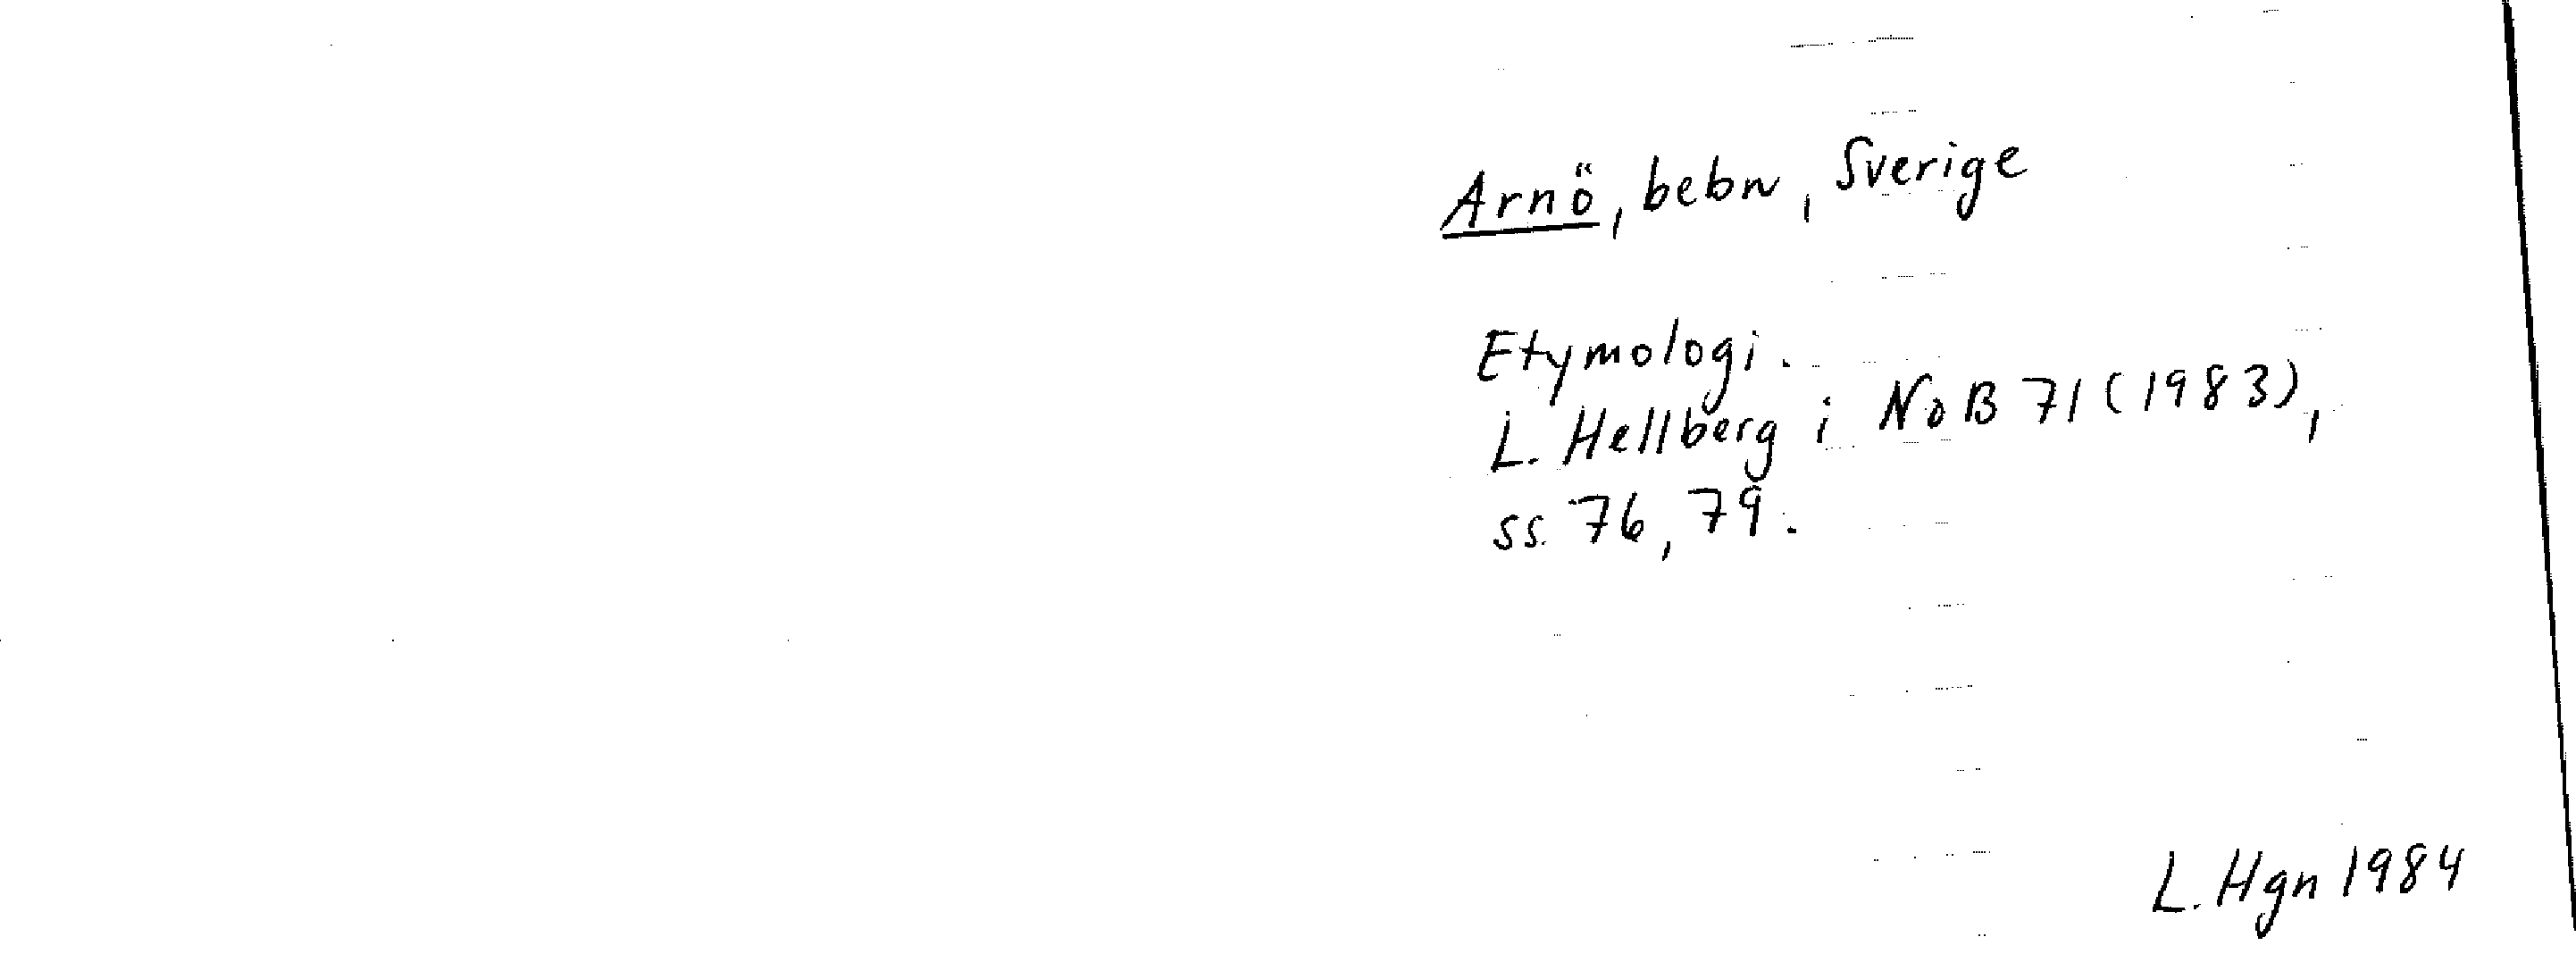 Arnö, bebn, Sverige
Etymologi.
L. Hellberg i NoB 71 (1983),
ss. 76, 79.
L. Hgn 1984